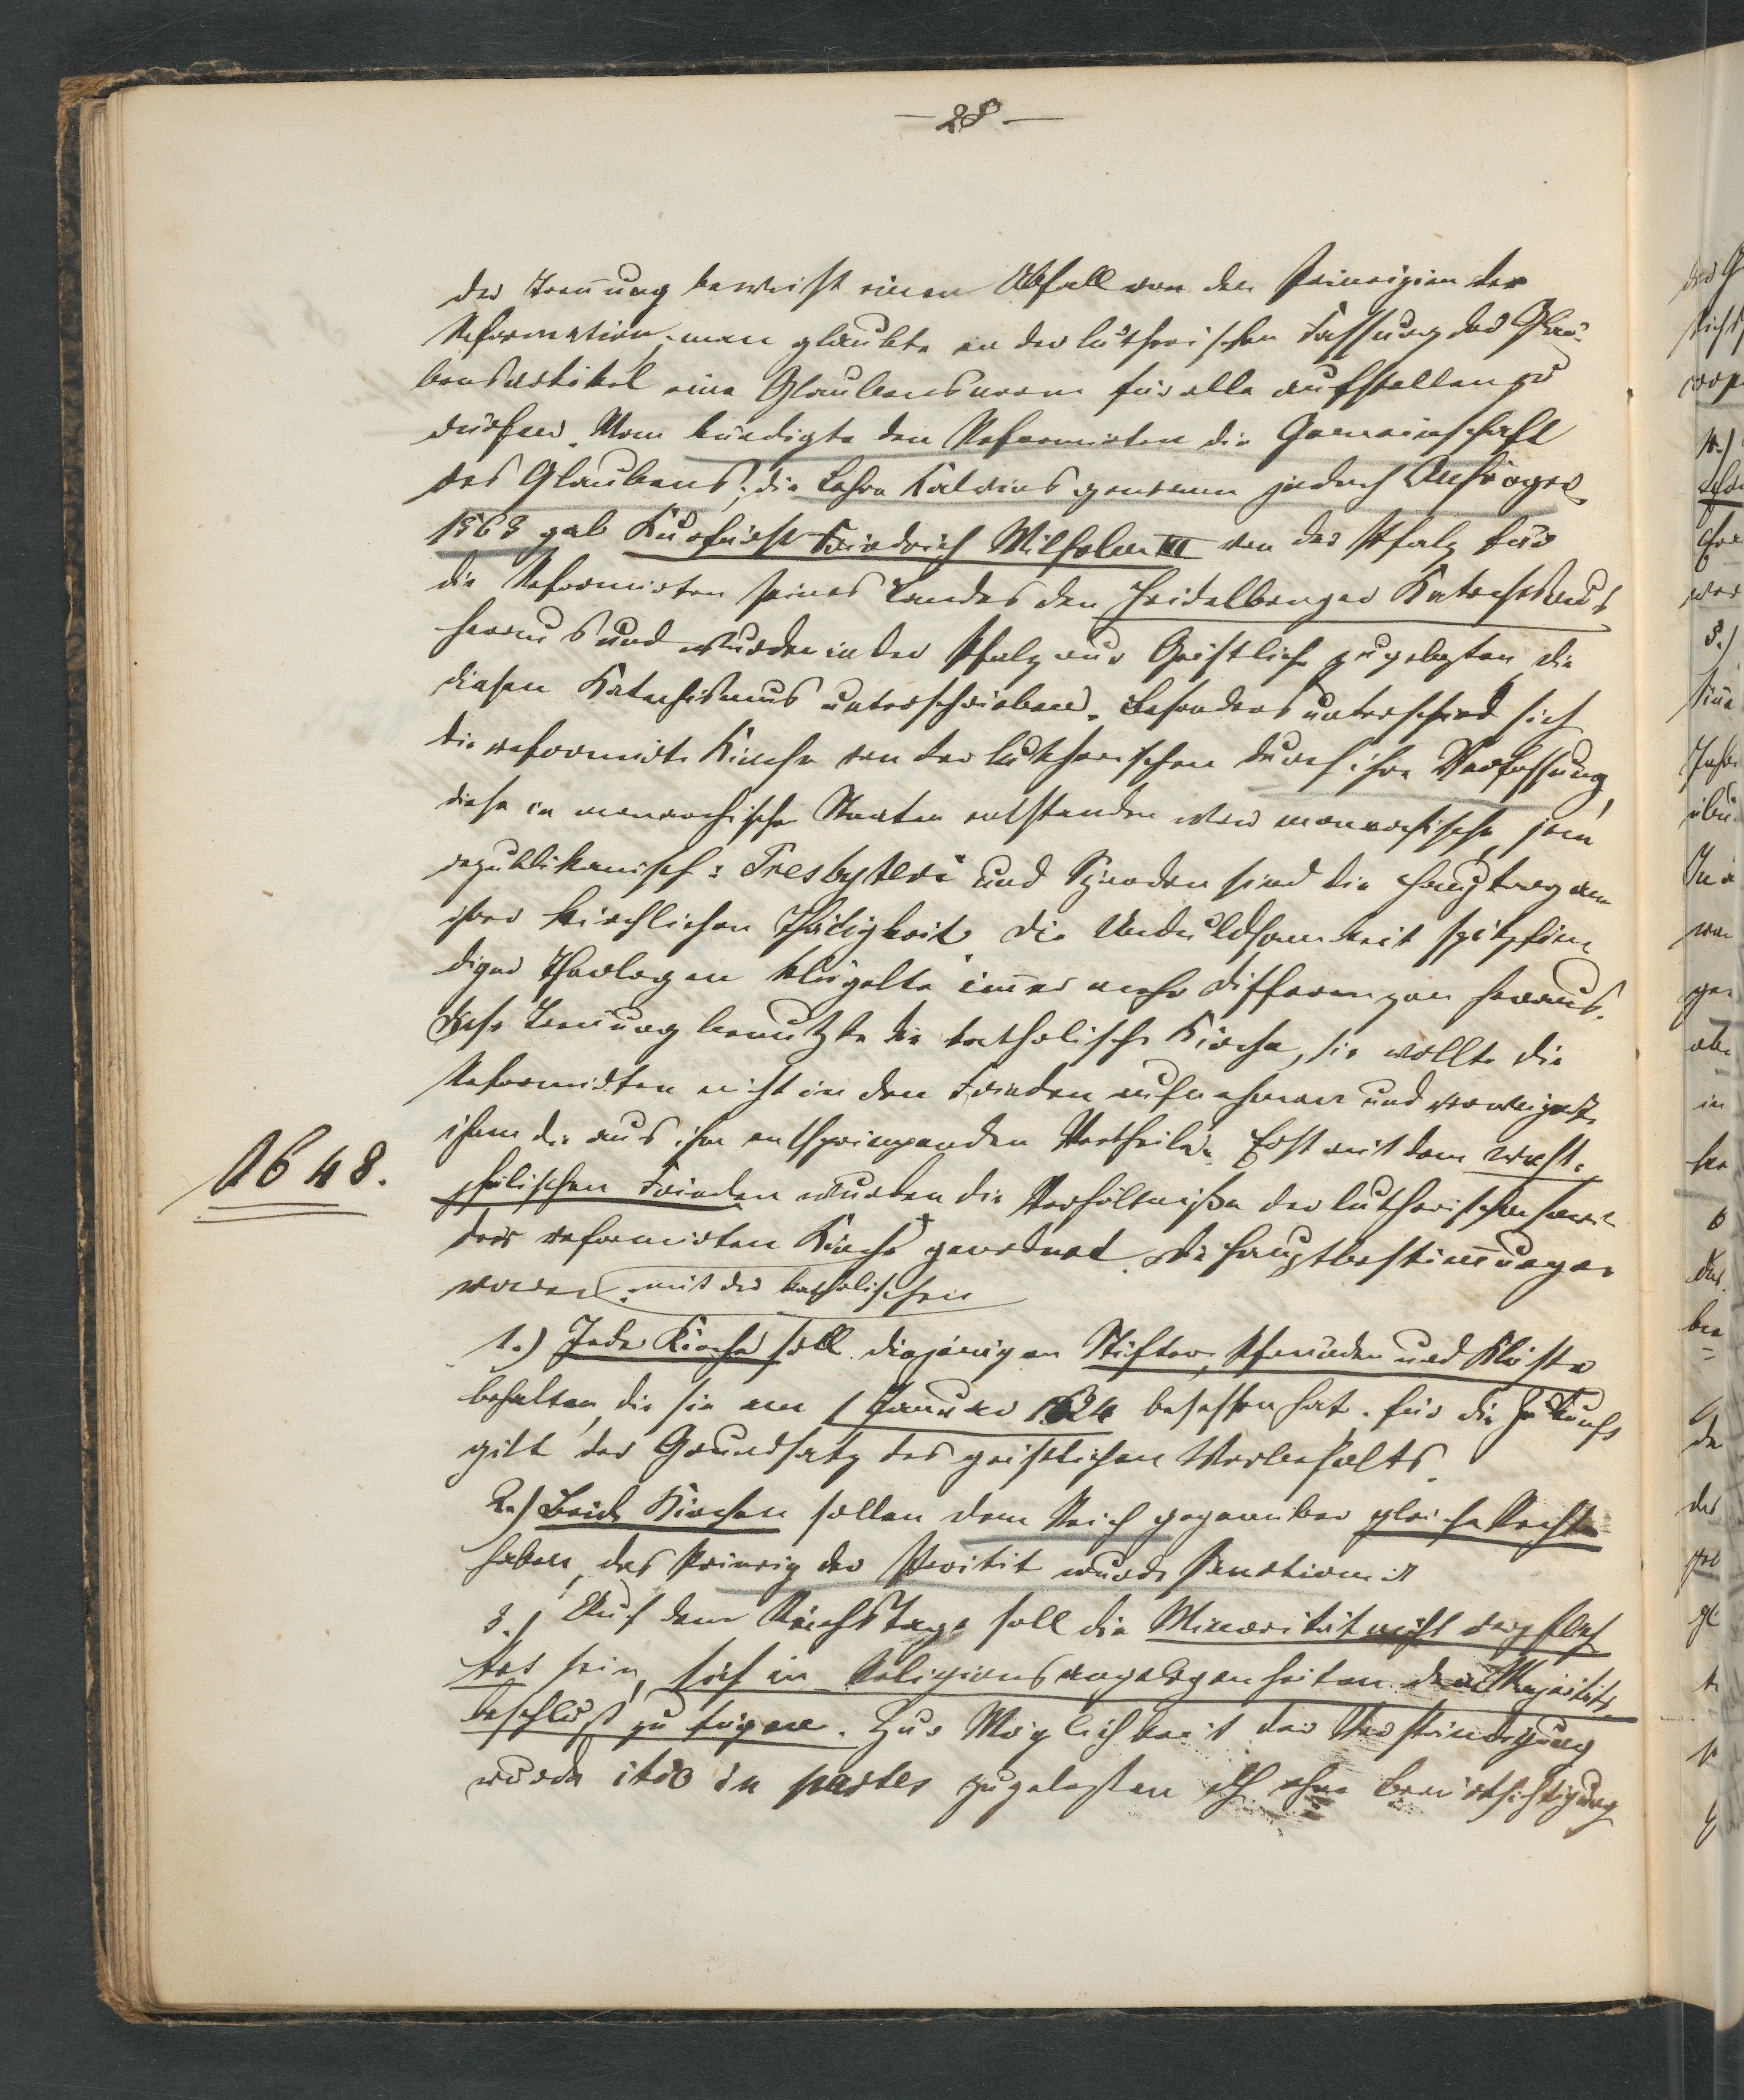 — 28 —
der Trennung beweist einen Abfall von den Principien der
Reformation, man glaubte in der lutherischen Fassung des Glau-
bensartikel eine Glaubensnorm für alle aufstellen zu
dürfen. Man kündigte den Reformirten die Gemeinschaft
des Glaubens; die Lehre Kalvins gewann jedoch Anhänger
1563 gab Kurfürst Friedrich Wilhelm III von der Pfalz für
die Reformirten seines Landes den Heidelberger Katechismus
heraus und wurden in der Pfalz nur Geistliche zugelassen, die
diesen Katechismus unterschrieben. Besonders unterschied sich
die reformirte Kirche von der lutherischen durch ihre Verfassung,
diese in monarchische Staaten entstanden war monarchisch, jene
republikanisch: Presbyteri und Synoden sind die Hauptorgane
ihrer kirchlichen Thätigkeit. Die Unduldsamkeit spitzfin
diger Theologen klügelte immer mehr Differenzen heraus.
Diese Trennung benutzte die katholische Kirche, sie wollte die
Reformirten nicht in den Frieden aufnehmen und verweigerte
ihnen die aus ihm entspringenden Vortheile. Erst mit dem West-
1648.
phälischen Frieden wurden die Verhältniße der lutherischen sowie
der reformirten Kirche geordnet. Die Hauptbestimmungen
waren: mit der katholischen
1.) Jede Kirche soll diejenigen Stifter, Pfründen und Klöster
behalten, die sie am 1 Januar 1624 besessen hat. für die Zukunft
gilt der Grundsatz des geistlichen Vorbehalts.
2.) Beide Kirchen sollen dem Reich gegenüber gleiche Rechte
haben, das Princip der Parität wurde sanctionirt
3.) Auf dem Reichstage soll die Minorität nicht verpflich
tet sein, sich in Religionsangelegenheiten dem Majoritäts-
beschluß zu fügen. Zur Möglichkeit der Verständigung
wurde itio in partes zugelassen ohne Berücksichtigung